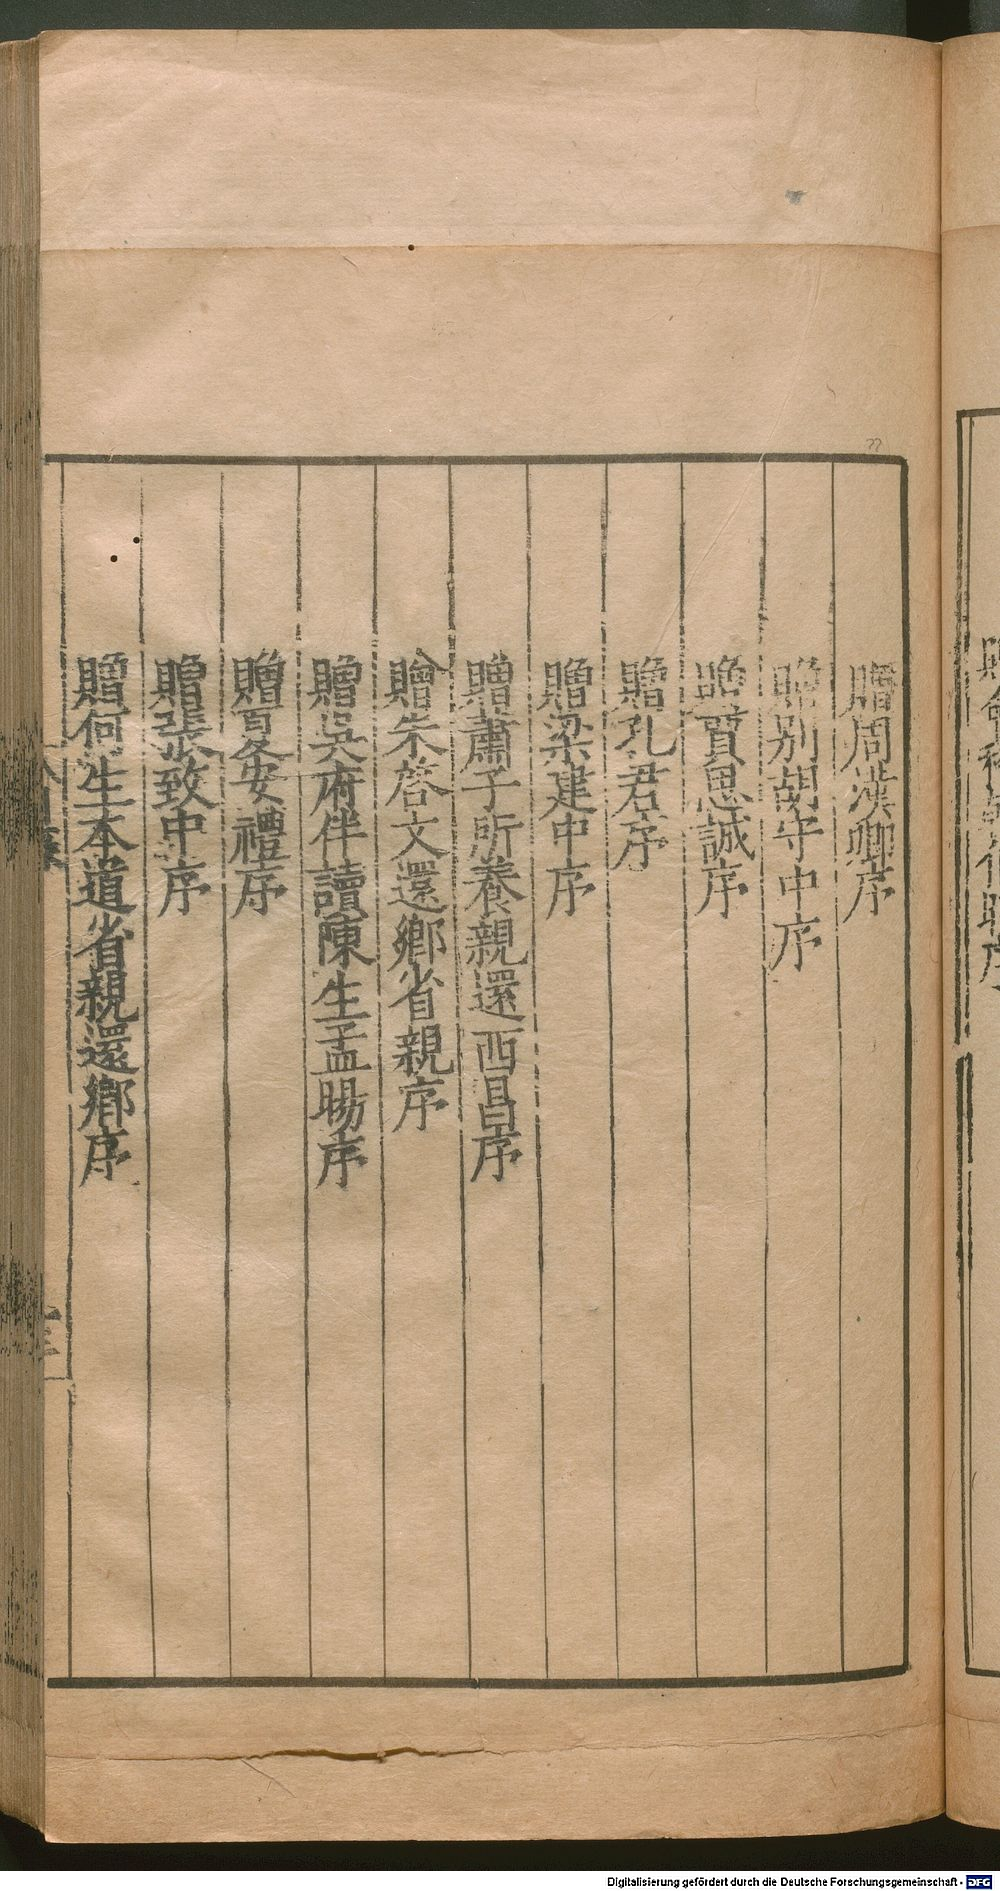 贈周漢卿序
贈別胡守中序
贈賈思誠序
贈孔君序
贈梁建中序
贈蕭子所養親還西昌序
贈朱啓文還鄉省親序
贈吳府伴讀陳生孟暘序
贈夏安禮序
贈張致中序
贈何生本道省親還鄉序
Digitalisierung gefördert durch die Deutsche Forschungsgemeinschaft - DFG